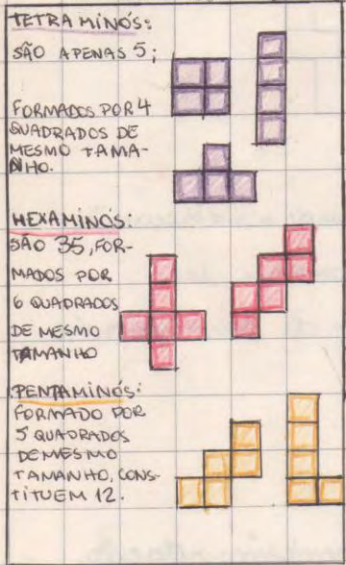 TETRAMINÓS:
SÃO APENAS 5;
FORMADOS POR 4
QUADRADOS DE
MESMO TAMA-
NHO.
HEXAMINÓS:
SÃO 35, FOR-
MADOS POR
6 QUADRADOS
DE MESMO
TAMANHO
PENTAMINÓS:
FORMADO POR
5 QUADRADOS
DE MESMO
TAMANHO, CONS-
TITUEM 12.